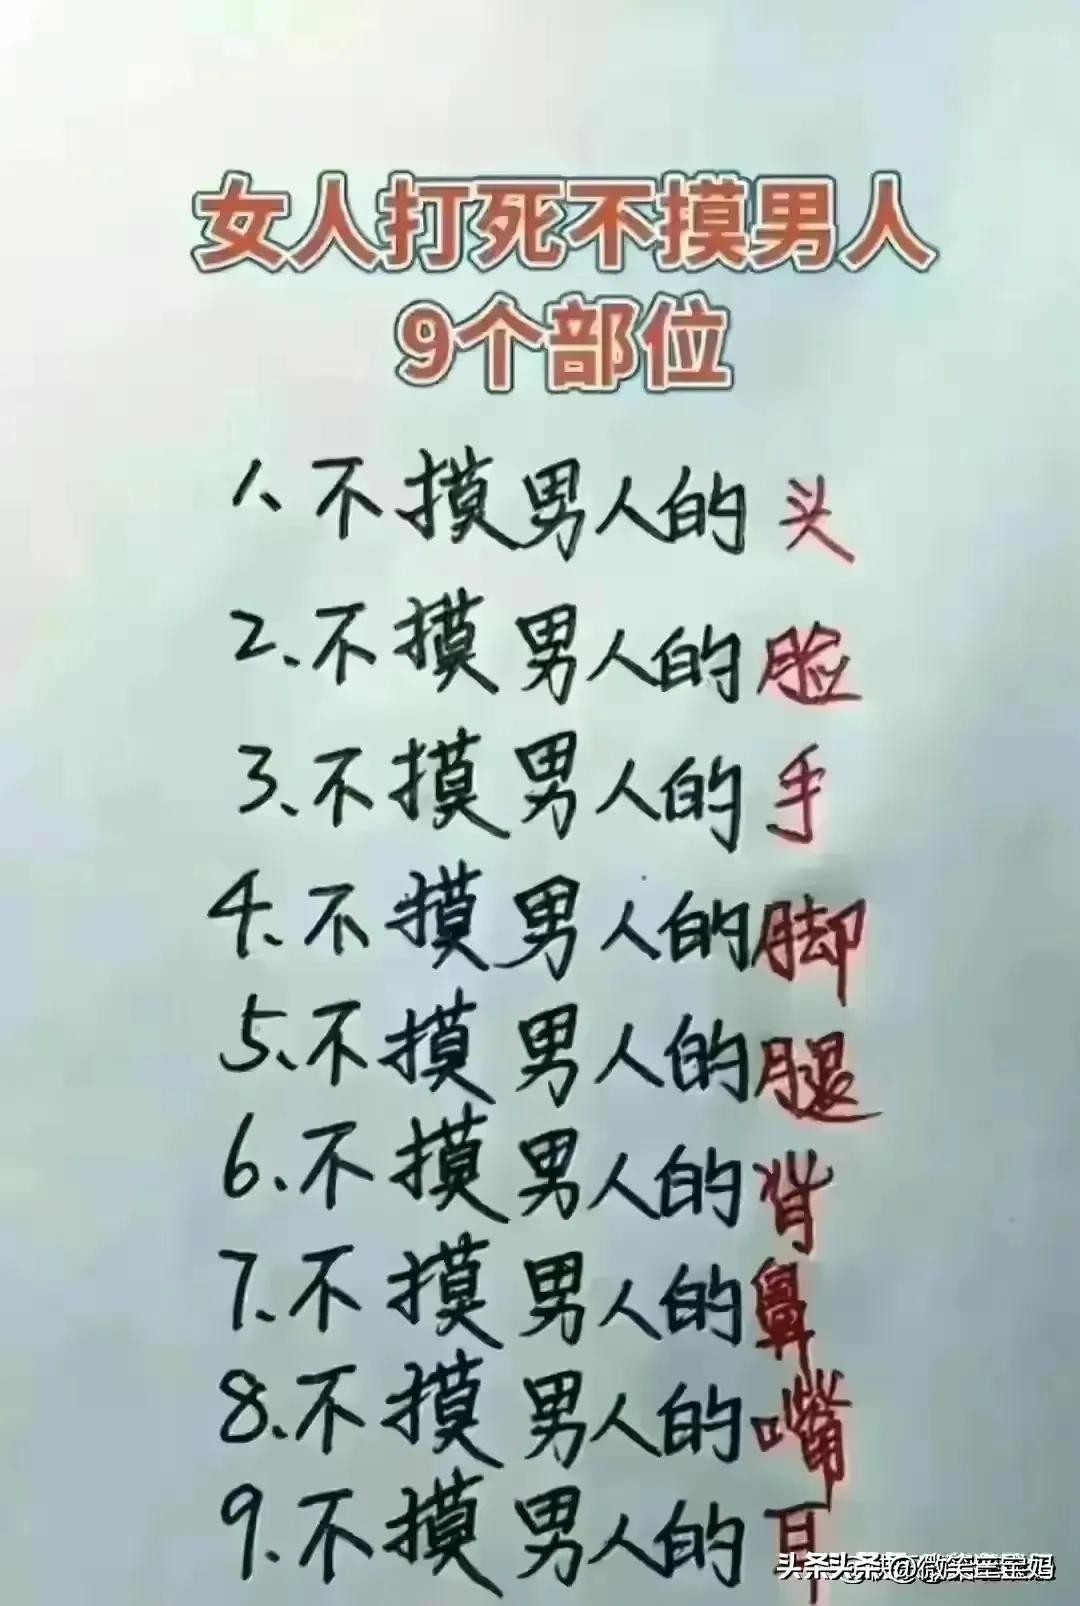 女人打死不摸男人
9个部位
1、不摸男人的头
2、不摸男人的脸
3、不摸男人的手
4、不摸男人的脚
5、不摸男人的腿
6、不摸男人的背
7、不摸男人的鼻
8、不摸男人的嘴
9、不摸男人的耳
头条 @微笑